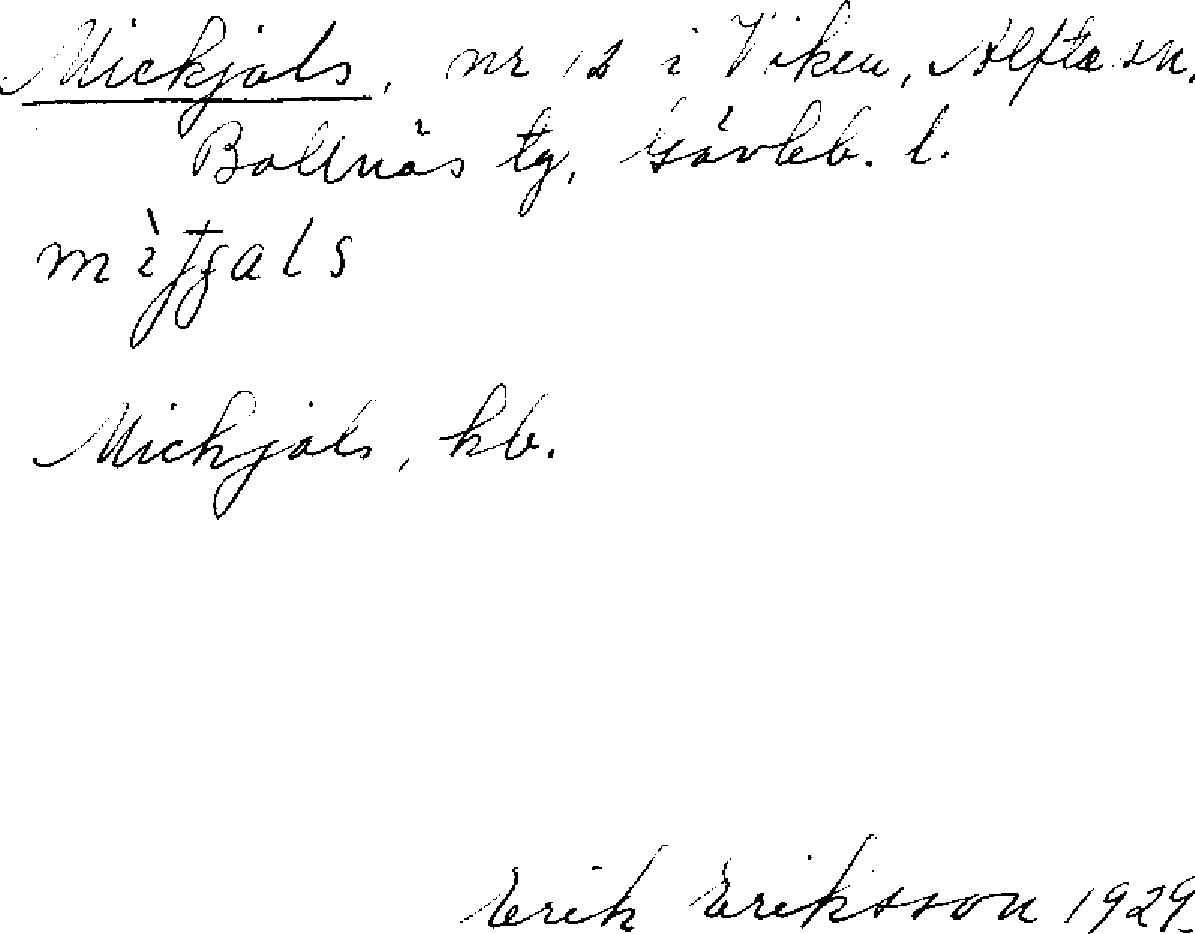 Mickjals, nr 12 i Viken, Alfta sn.
Bollnäs tg, Gävleb. l.
Mickjals, kb.
Erik Eriksson 1929.